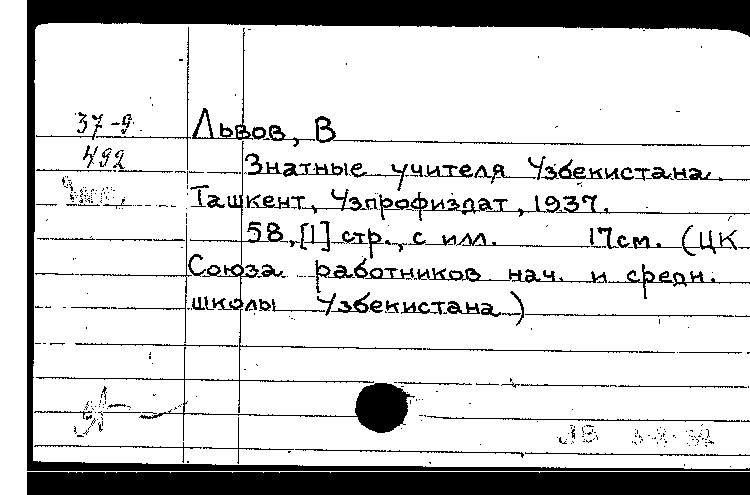 37-9
492
Львов, В
Знатные учителя Узбекистана.
Ташкент, Узпрофиздат, 1937.
58,[1] стр., с илл. 17см. (ЦК
Союза работников нач. и средн.
школы Узбекистана)